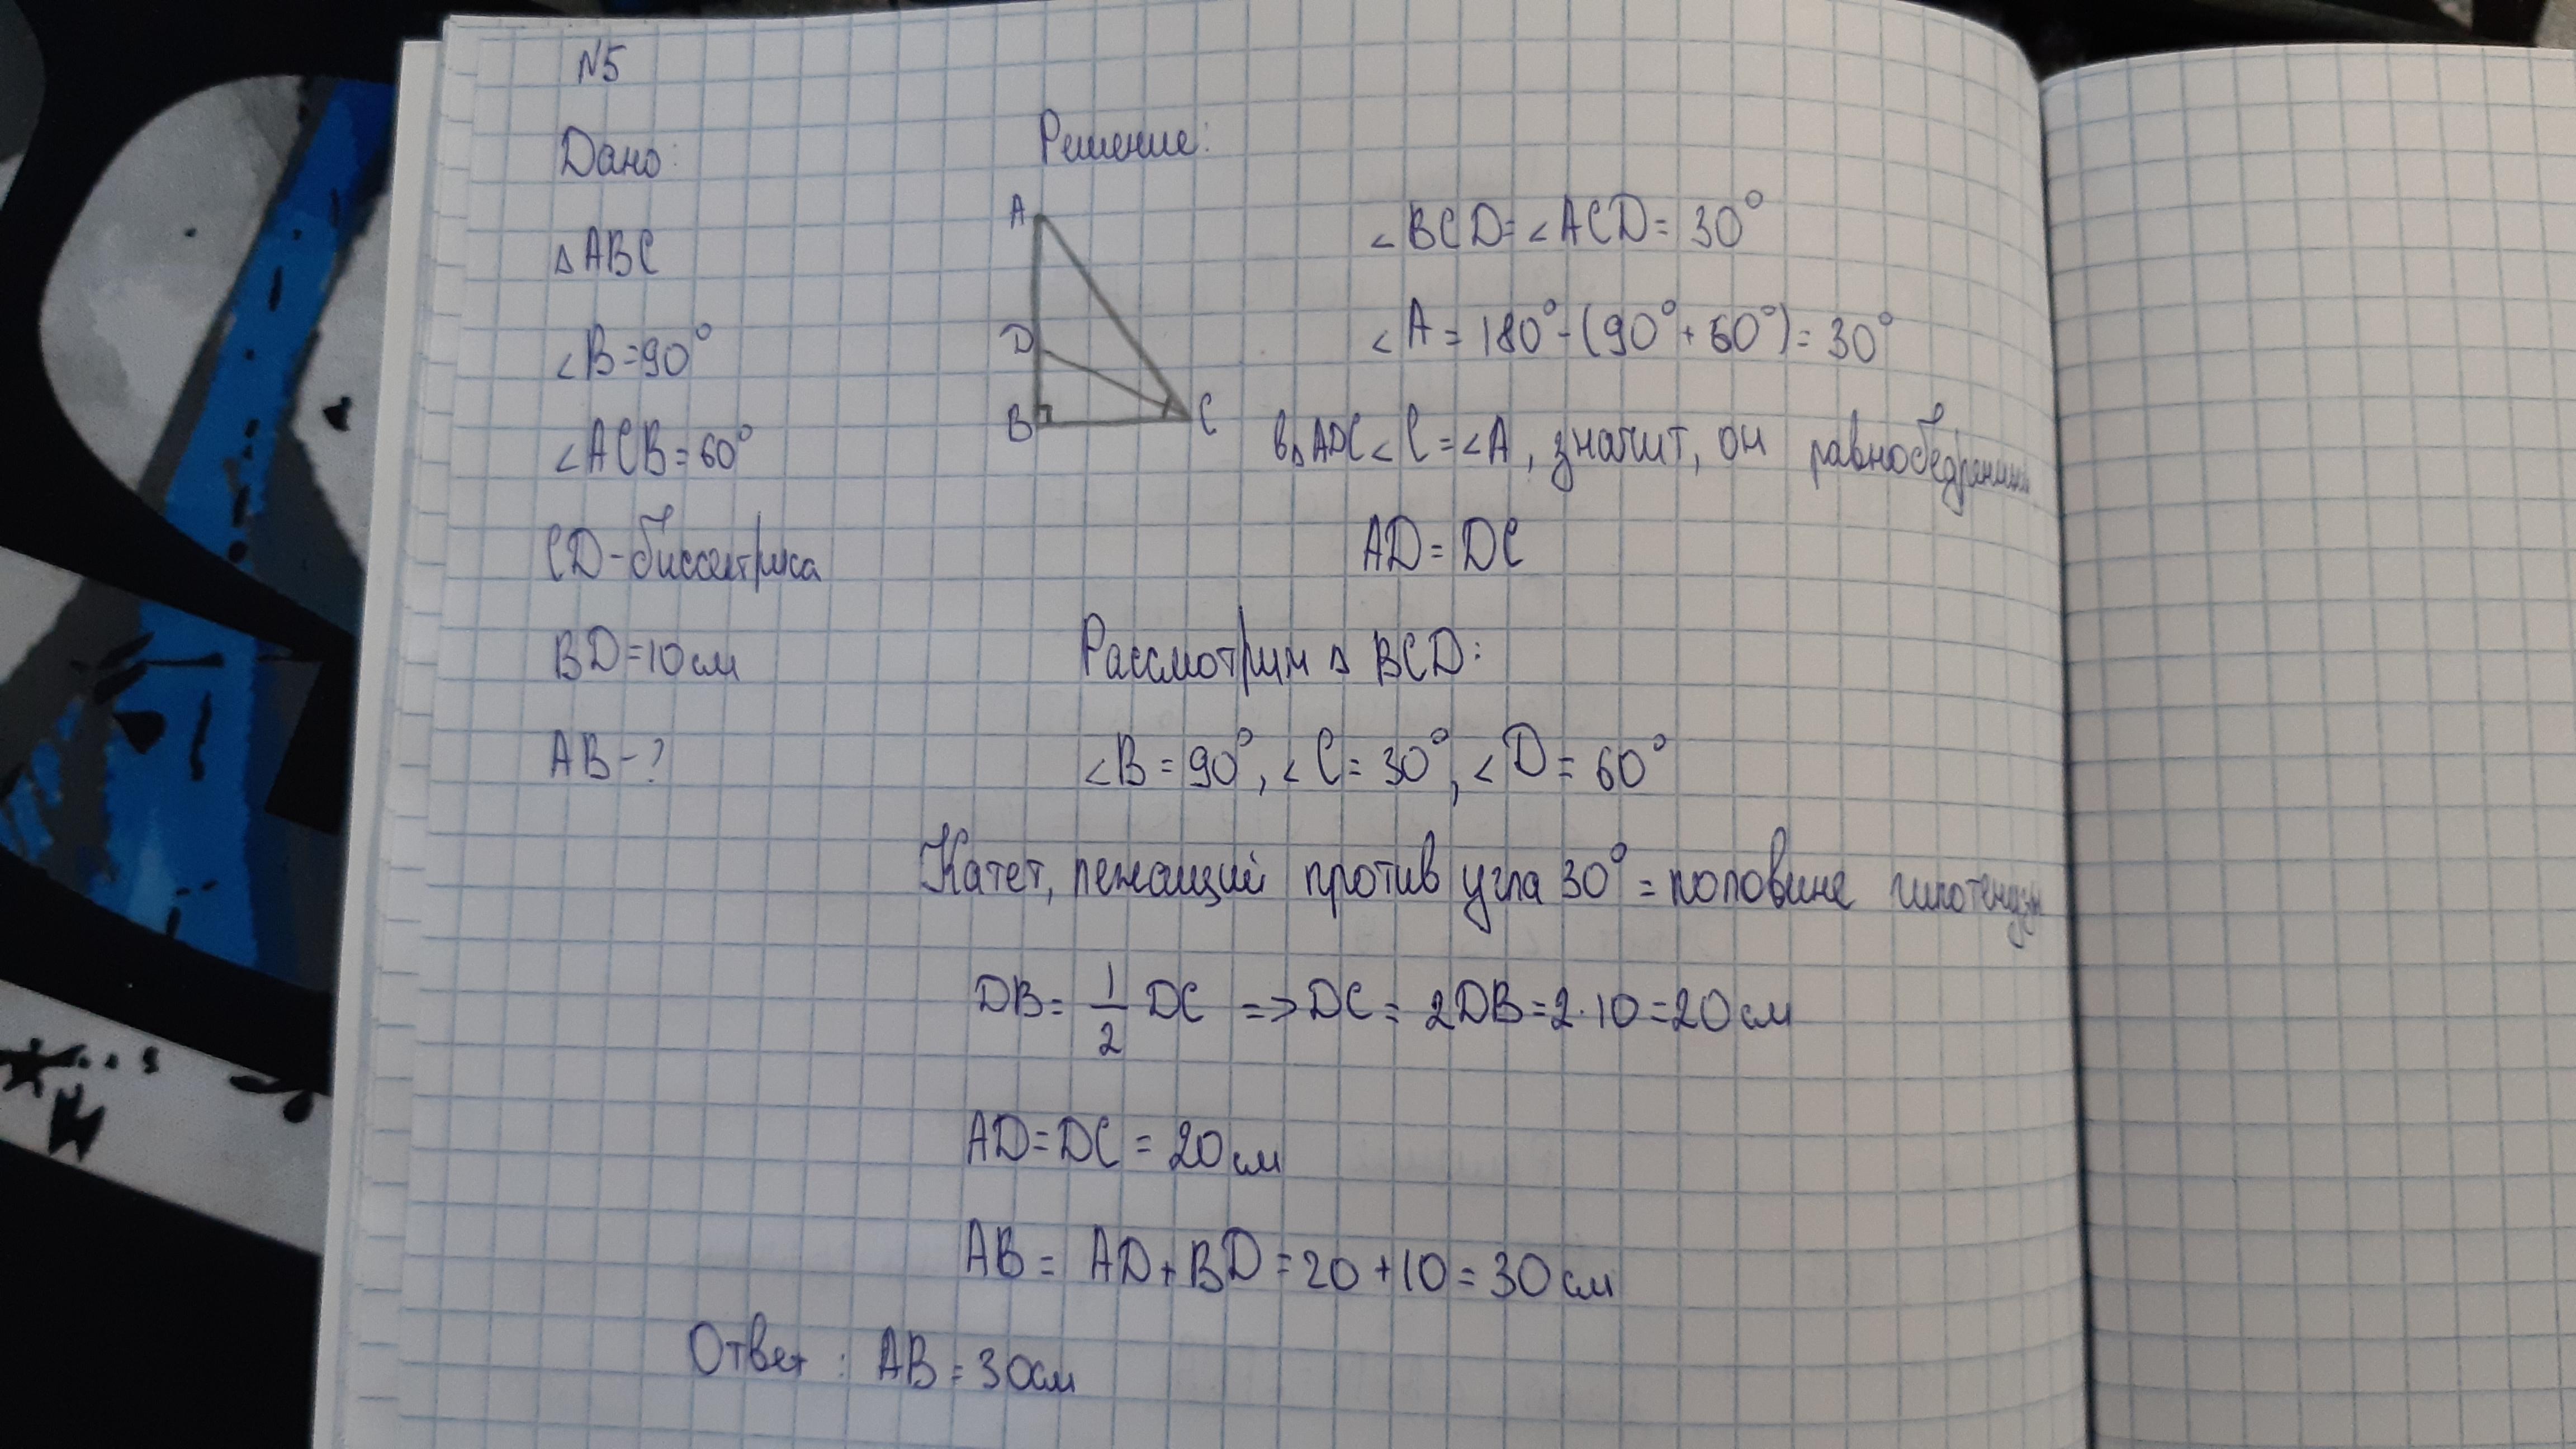 N5
Дано:
△ABC
∠B=90°
∠ACB=60°
CD-биссектриса
BD=10см
AB-?
Решение:
A
D
B
C
∠BCD=∠ACD=30°
∠A=180°-(90°+60°)=30°
в△ADC∠C=∠A, значит, он равнобедренный
AD=DC
Рассмотрим △BCD:
∠B=90°, ∠C=30°, ∠D=60°
Катет, лежащий против угла 30°=половине гипотенузы
DB=1/2 DC => DC=2DB=2·10=20см
AD=DC=20см
AB=AD+BD=20+10=30см
Ответ: AB=30см